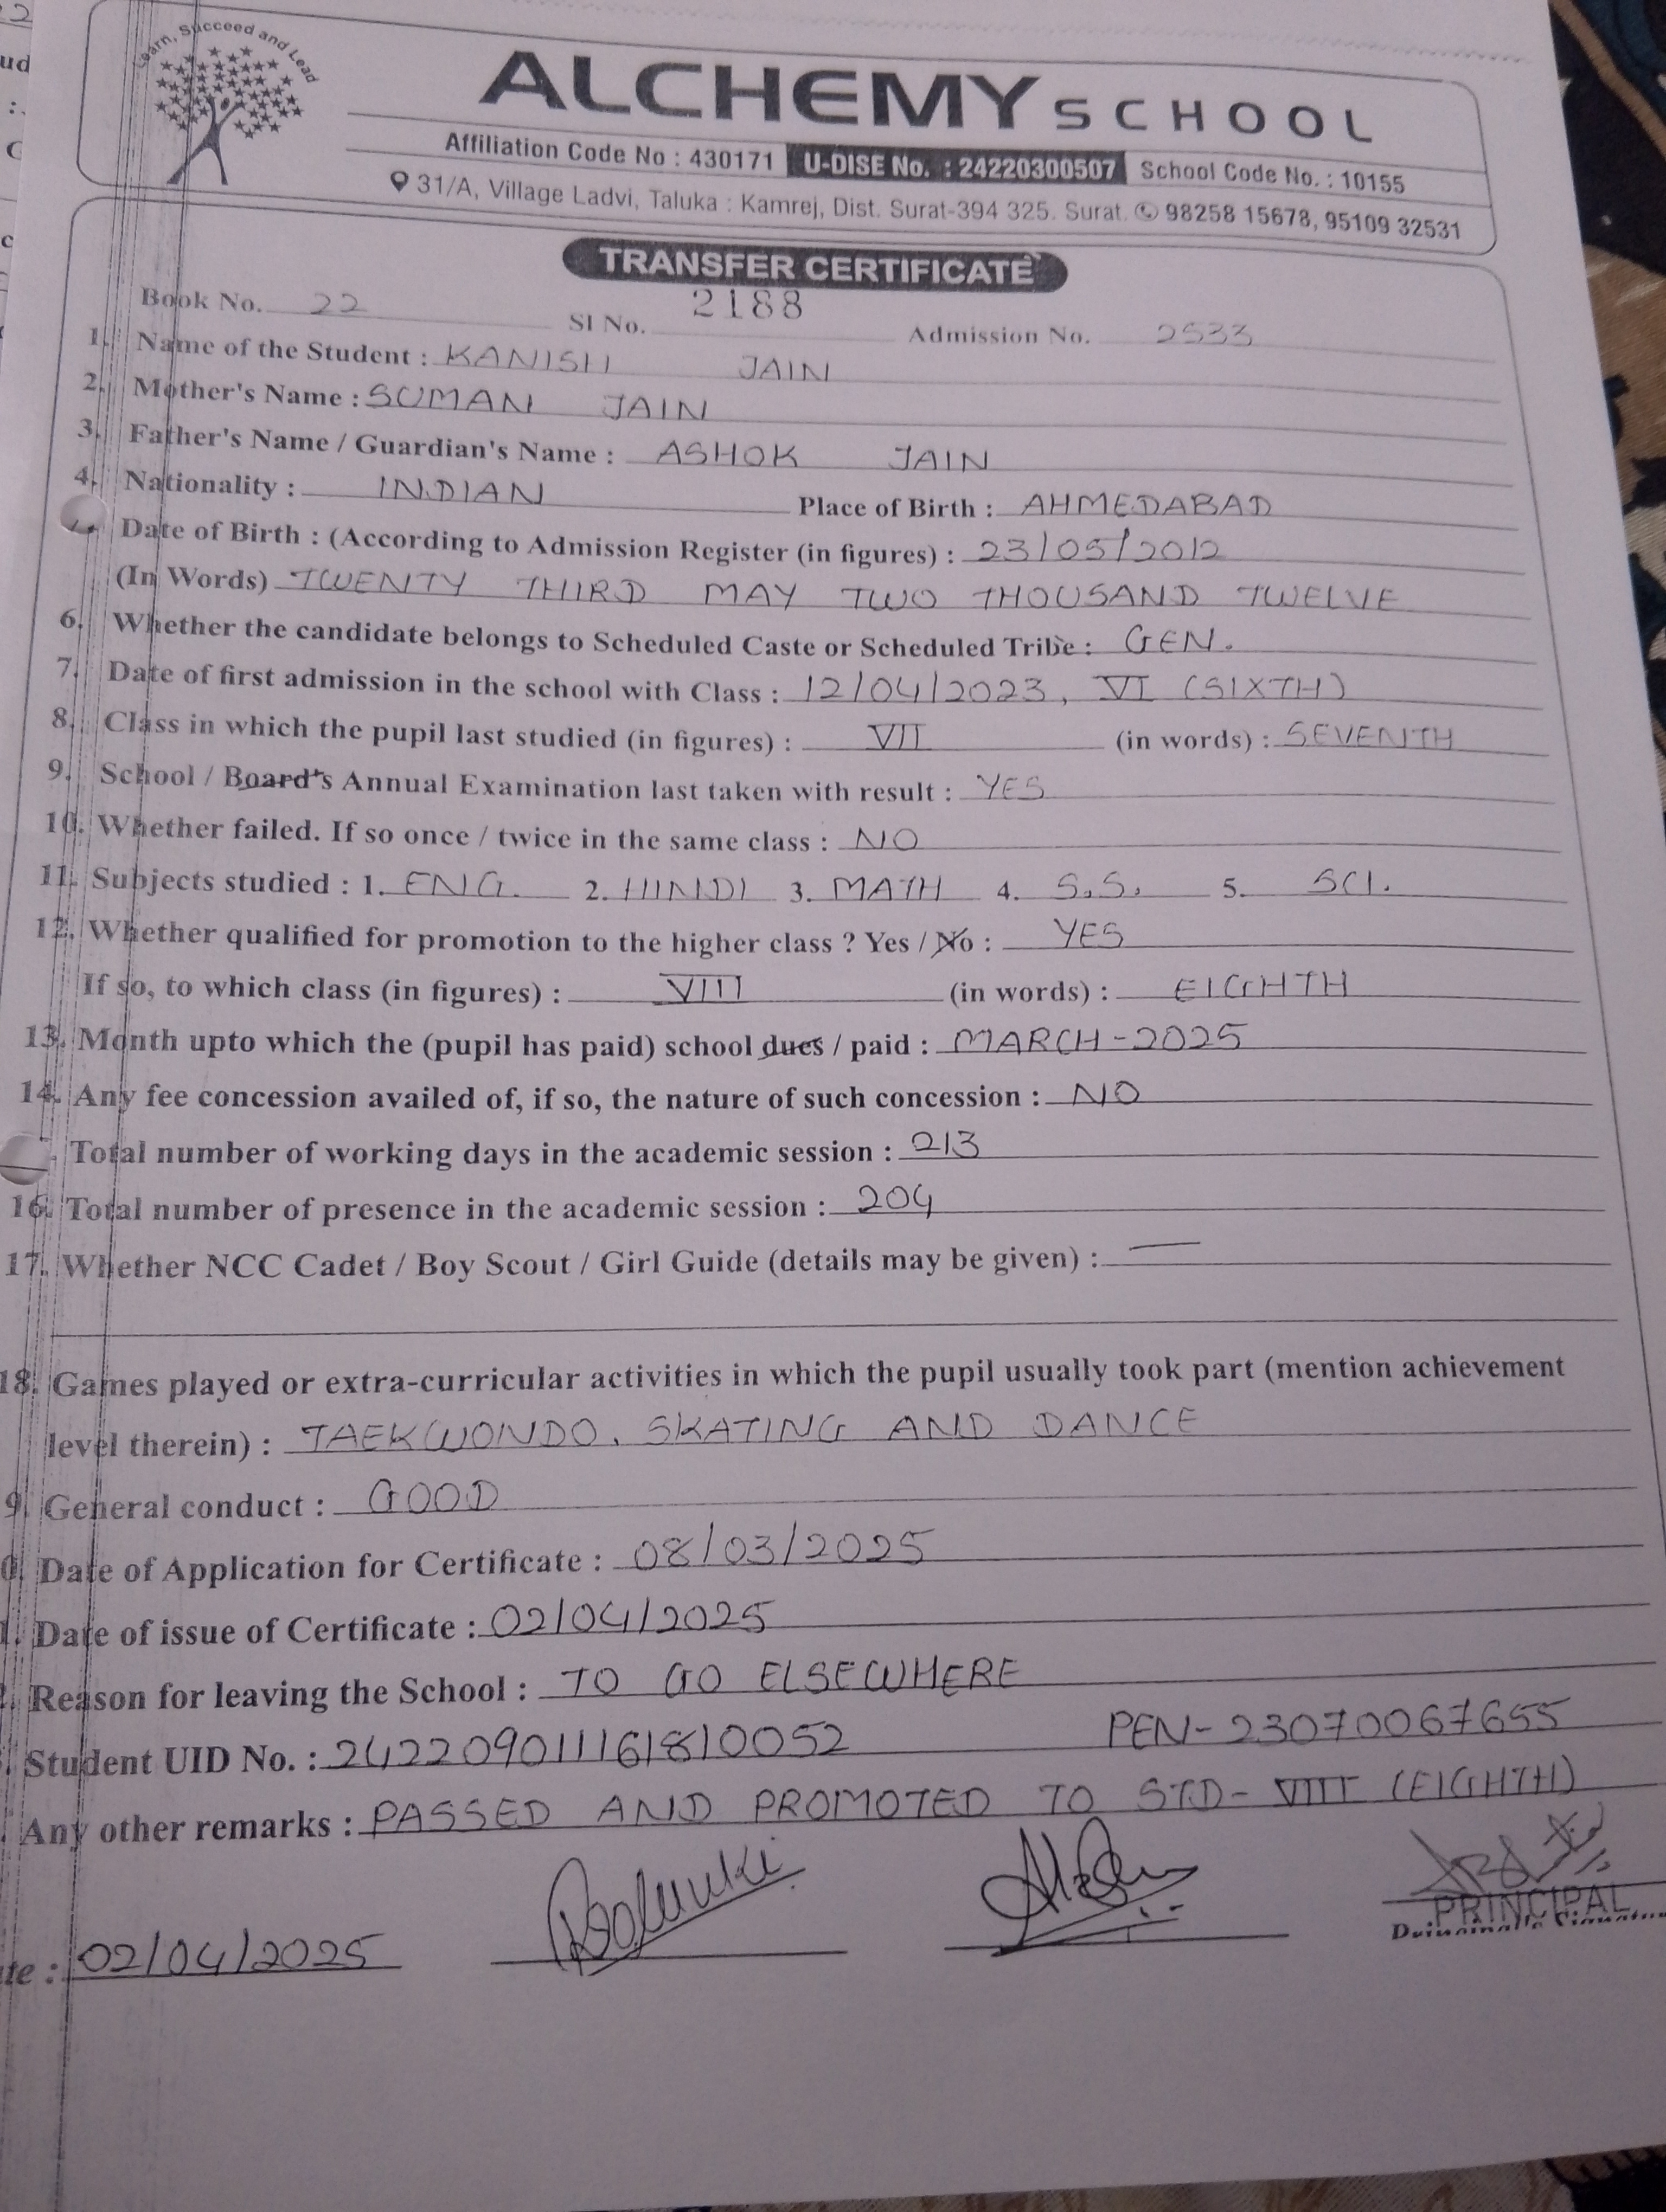 Learn, Succeed and Lead
ALCHEMY SCHOOL
Affiliation Code No : 430171 U-DISE No. : 24220300507 School Code No. : 10155
31/A, Village Ladvi, Taluka : Kamrej, Dist. Surat-394 325. Surat. 98258 15678, 95109 32531
TRANSFER CERTIFICATE
Book No. 22 Sl No. 2188 Admission No. 2533
1. Name of the Student : KANISH JAIN
2. Mother's Name : SUMAN JAIN
3. Father's Name / Guardian's Name : ASHOK JAIN
4. Nationality : INDIAN Place of Birth : AHMEDABAD
Date of Birth : (According to Admission Register (in figures) : 23/05/2012
(In Words) TWENTY THIRD MAY TWO THOUSAND TWELVE
6. Whether the candidate belongs to Scheduled Caste or Scheduled Tribe : GEN.
7. Date of first admission in the school with Class : 12/04/2023, VI (SIXTH)
8. Class in which the pupil last studied (in figures) : VII (in words) : SEVENTH
9. School / Board's Annual Examination last taken with result : YES
10. Whether failed. If so once / twice in the same class : NO
11. Subjects studied : 1. ENG. 2. HINDI 3. MATH 4. S.S. 5. SCI.
12. Whether qualified for promotion to the higher class ? Yes / No : YES
If so, to which class (in figures) : VIII (in words) : EIGHTH
13. Month upto which the (pupil has paid) school dues / paid : MARCH-2025
14. Any fee concession availed of, if so, the nature of such concession : NO
Total number of working days in the academic session : 213
16. Total number of presence in the academic session : 204
17. Whether NCC Cadet / Boy Scout / Girl Guide (details may be given) : —
18. Games played or extra-curricular activities in which the pupil usually took part (mention achievement
level therein) : TAEKWONDO, SKATING AND DANCE
9. General conduct : GOOD
0. Date of Application for Certificate : 08/03/2025
. Date of issue of Certificate : 02/04/2025
. Reason for leaving the School : TO GO ELSEWHERE
. Student UID No. : 242209011161810052 PEN-23070067655
. Any other remarks : PASSED AND PROMOTED TO STD- VIII (EIGHTH)
PRINCIPAL
te : 02/04/2025